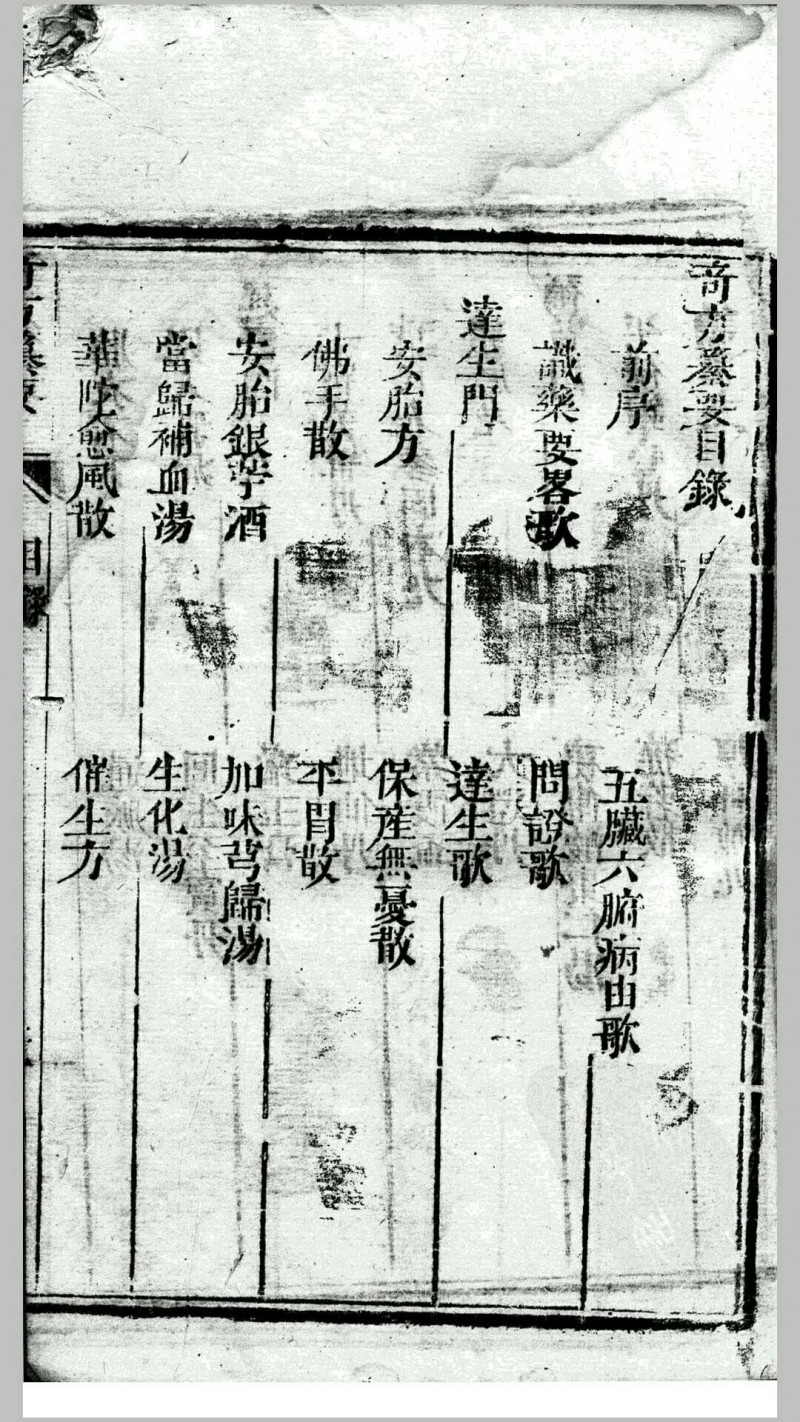 奇方纂要目錄
前序
五臟六腑病由歌
識藥要畧歌
問證歌
達生門
達生歌
安胎方
保產無憂散
佛手散
平胃散
安胎銀苧酒
加味芎歸湯
當歸補血湯
生化湯
華陀愈風散
催生方
奇方纂要
目錄
一